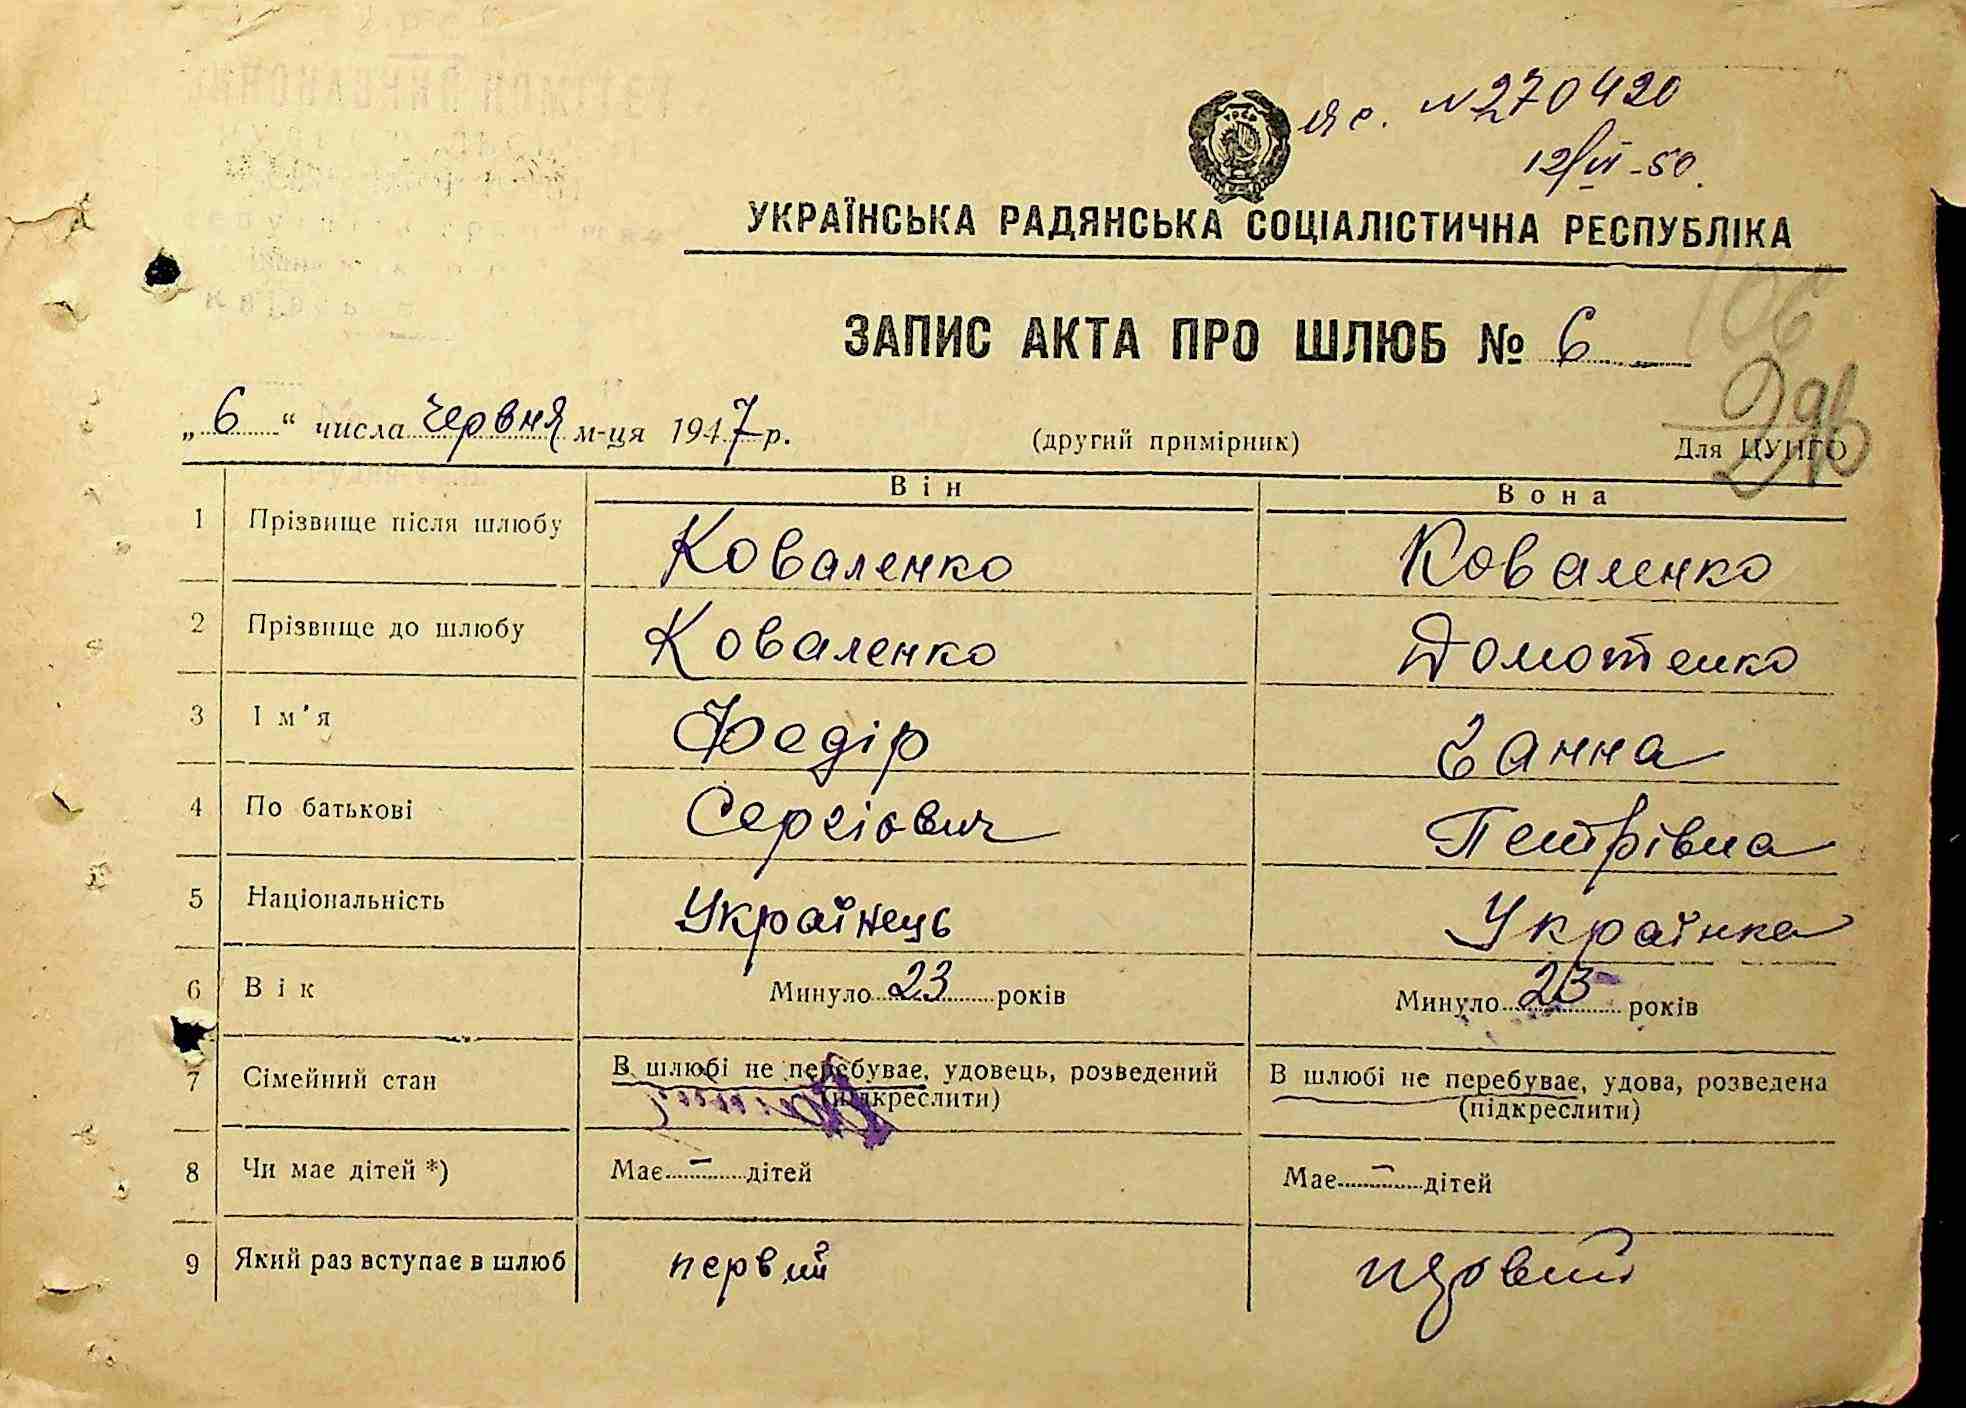 яс. № 270420
12/VI-50.
УРСР
УКРАЇНСЬКА РАДЯНСЬКА СОЦІАЛІСТИЧНА РЕСПУБЛІКА
106
ЗАПИС АКТА ПРО ШЛЮБ № 6
296
„6“ числа червня м-ця 1947 р. (другий примірник) Для ЦУНГО
Він Вона
1 Прізвище після шлюбу Коваленко Коваленко
2 Прізвище до шлюбу Коваленко Домотенко
3 Ім'я Федір Ганна
4 По батькові Сергіович Петрівна
5 Національність Українець Українка
6 Вік Минуло 23 років Минуло 23 років
7 Сімейний стан В шлюбі не перебуває, удовець, розведений В шлюбі не перебуває, удова, розведена
(підкреслити) (підкреслити)
8 Чи має дітей *) Має – дітей Має – дітей
9 Який раз вступає в шлюб первий первий